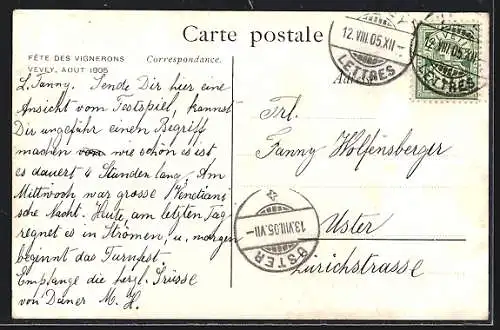 Carte postale
FÊTE DES VIGNERONS
VEVEY, AOUT 1905
Correspondance.
L. Fanny. Sende Dir hier eine
Ansicht vom Festspiel, kannst
Dir ungefähr einen Begriff
machen wie schön es ist
es dauert 4 Stunden lang. Am
Mittwoch war grosse Venetiani
sche Nacht. Heute, am letzten Tag
regnet es in Strömen, u. morgen
beginnt das Turnfest.
Empfange die herzl. Grüsse
von Deiner M. H.
12.VIII.05.XII
LETTRES
12.VIII.05.XII
LETTRES
Frl.
Fanny Wolfensberger
Uster
Zürichstrasse
13.VIII.05.VII
USTER